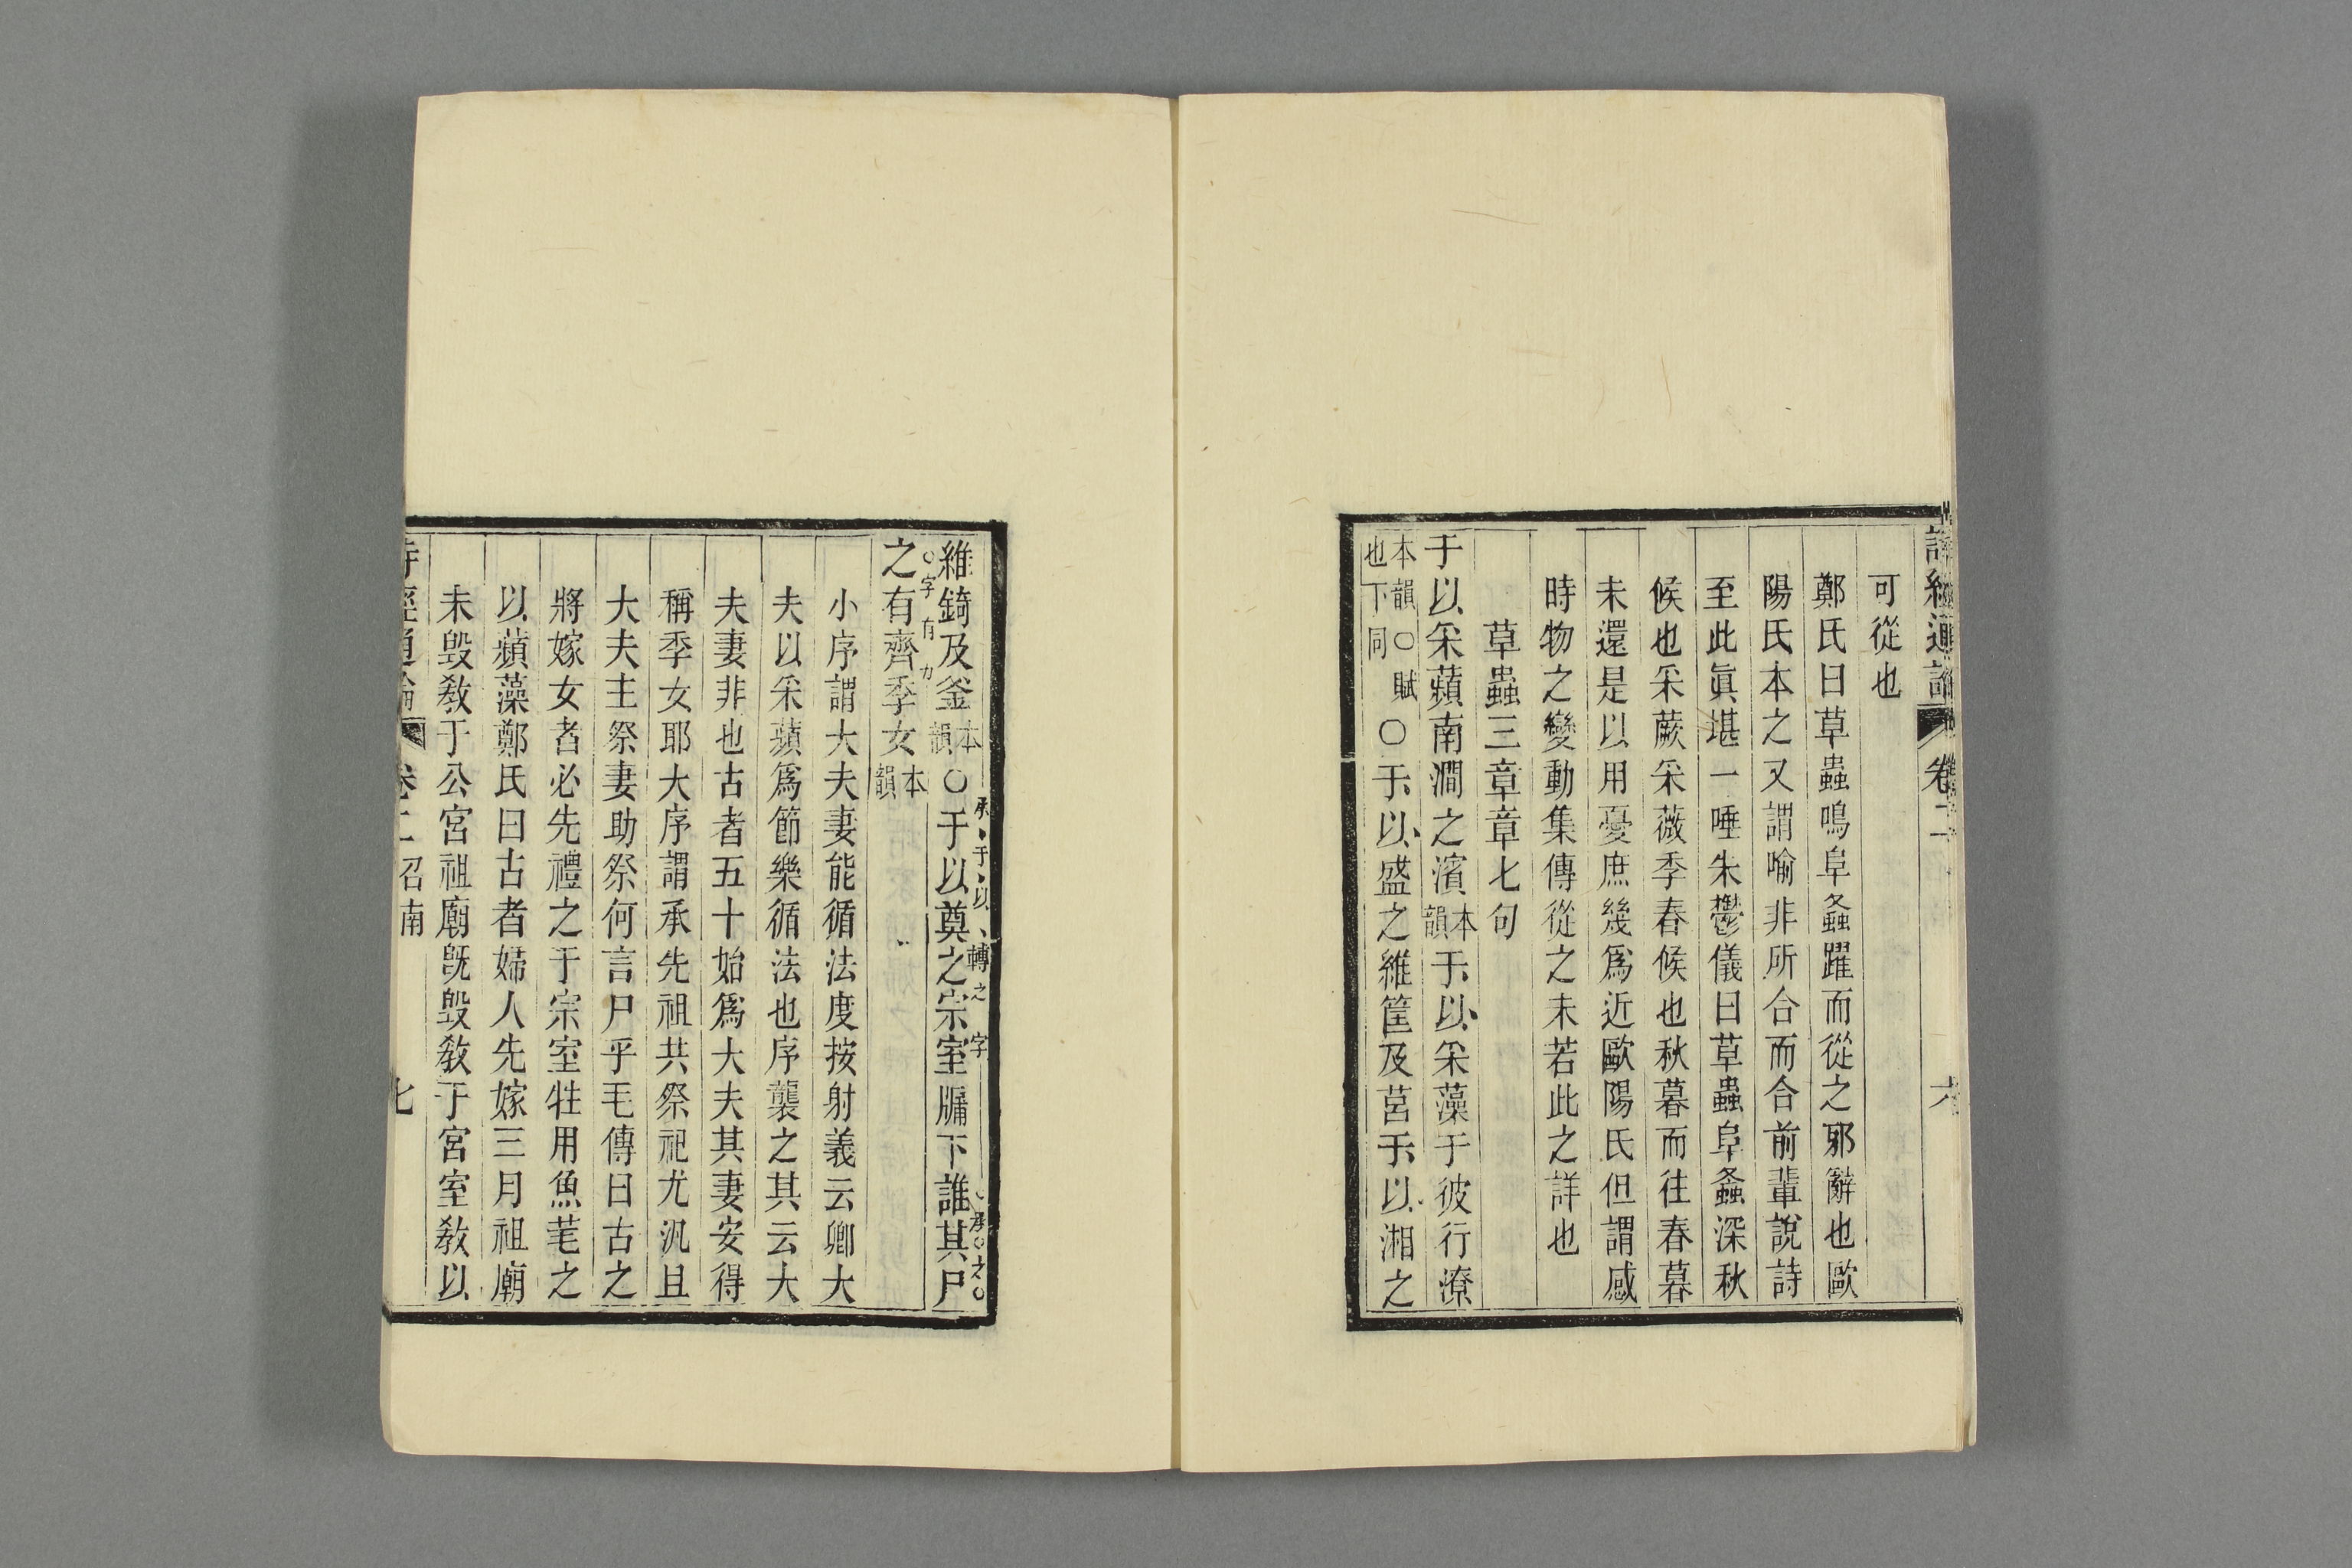 詩經通論 卷二 六
可從也
鄭氏曰草蟲鳴阜螽躍而從之邪辭也歐
陽氏本之又謂喻非所合而合前輩說詩
至此眞堪一唾朱鬱儀曰草蟲阜螽深秋
候也采蕨采薇季春候也秋暮而往春暮
未還是以用憂庶幾爲近歐陽氏但謂感
時物之變動集傳從之未若此之詳也
草蟲三章章七句
于以采蘋南澗之濱本韻于以采藻于彼行潦
本韻○賦也下同○于以盛之維筐及筥于以湘之
維錡及釜本韻○于以奠之宗室牖下誰其尸
承于以轉之字
承之
之有齊季女本韻
字有力
小序謂大夫妻能循法度按射義云卿大
夫以采蘋爲節樂循法也序襲之其云大
夫妻非也古者五十始爲大夫其妻安得
稱季女耶大序謂承先祖共祭祀尤汎且
大夫主祭妻助祭何言尸乎毛傳曰古之
將嫁女者必先禮之于宗室牲用魚芼之
以蘋藻鄭氏曰古者婦人先嫁三月祖廟
未毁敎于公宮祖廟旣毁敎于宮室敎以
詩經通論 卷二召南 七